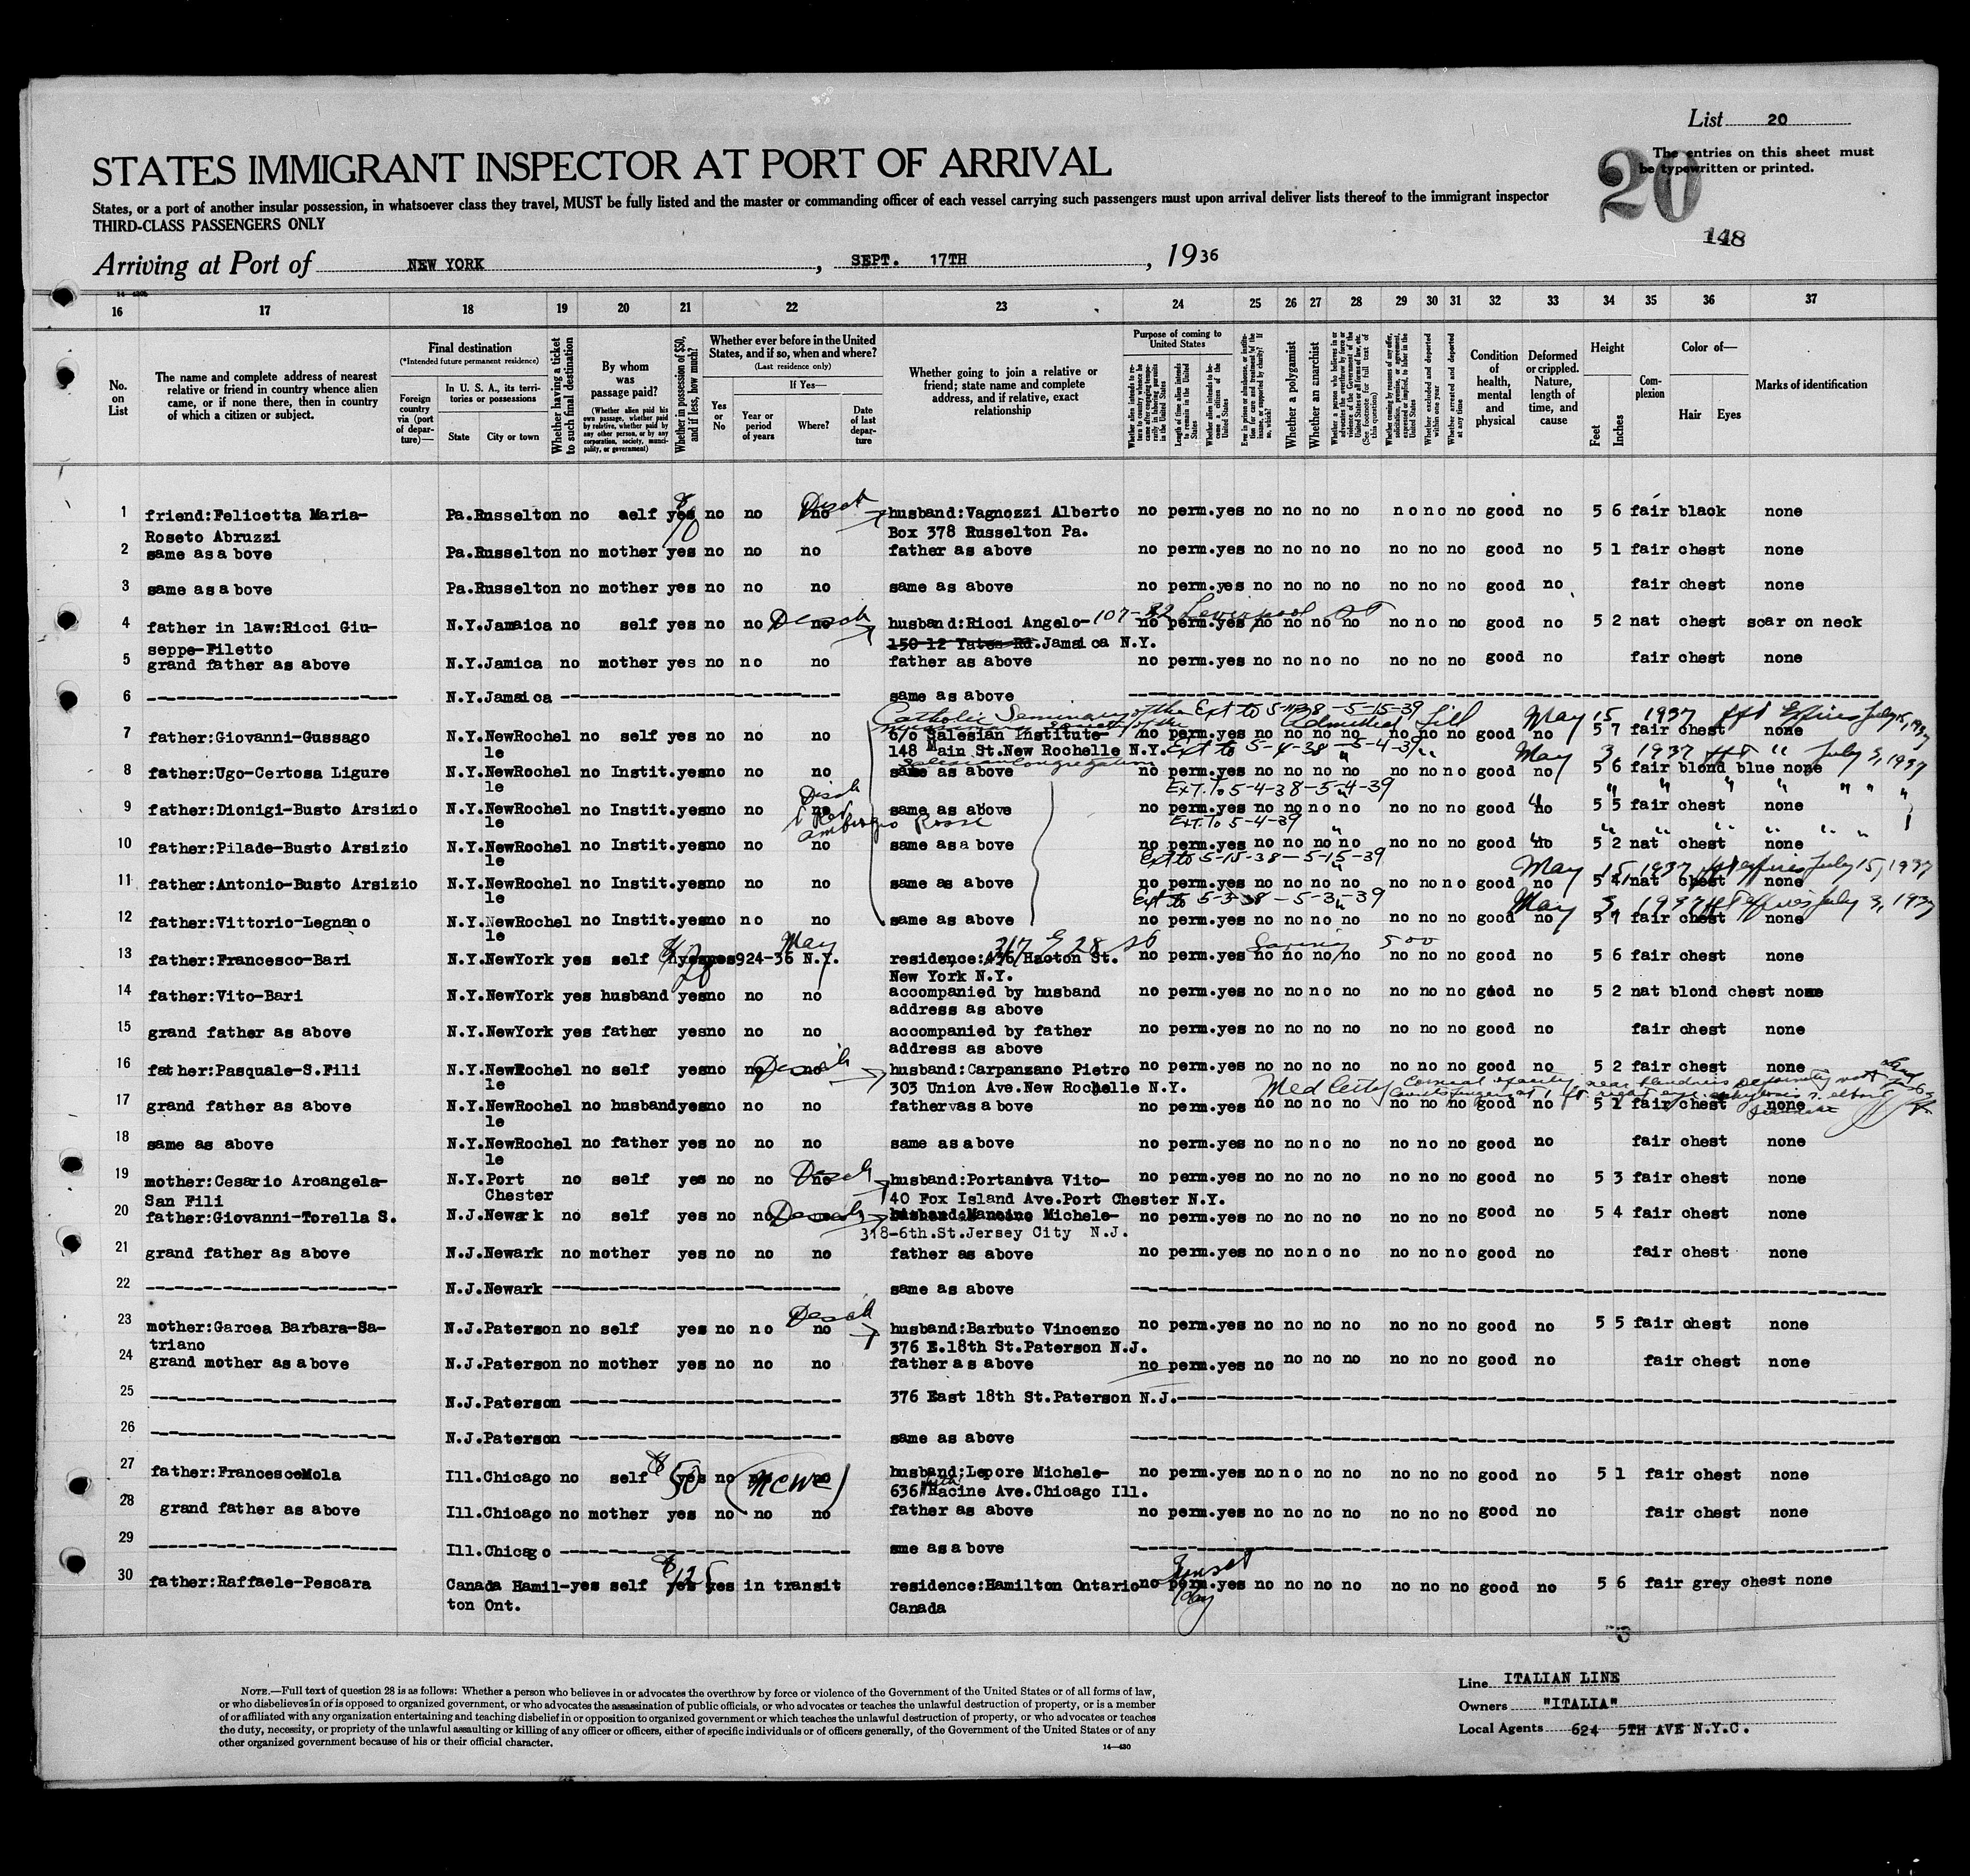 List 20
The entries on this sheet must
be typewritten or printed.
20
148
STATES IMMIGRANT INSPECTOR AT PORT OF ARRIVAL
States, or a port of another insular possession, in whatsoever class they travel, MUST be fully listed and the master or commanding officer of each vessel carrying such passengers must upon arrival deliver lists thereof to the immigrant inspector
THIRD-CLASS PASSENGERS ONLY
Arriving at Port of NEW YORK, SEPT. 17TH, 1936
16 17 18 19 20 21 22 23 24 25 26 27 28 29 30 31 32 33 34 35 36 37
No. on List
The name and complete address of nearest relative or friend in country whence alien came, or if none there, then in country of which a citizen or subject.
Final destination
(*Intended future permanent residence)
Foreign country via (port of departure)—
In U. S. A., its territories or possessions
State City or town
Whether having a ticket to such final destination
By whom was passage paid?
(Whether alien paid his own passage, whether paid by relative, whether paid by any other person, or by any corporation, society, municipality, or government)
Whether in possession of $50, and if less, how much?
Whether ever before in the United States, and if so, when and where?
(Last residence only)
Yes or No
If Yes—
Year or period of years
Where?
Date of last departure
Whether going to join a relative or friend; state name and complete address, and if relative, exact relationship
Purpose of coming to United States
Whether a polygamist
Whether an anarchist
(See footnote for full text of this question)
Whether excluded and deported within one year
Whether arrested and deported at any time
Condition of health, mental and physical
Deformed or crippled. Nature, length of time, and cause
Height
Feet Inches
Complexion
Color of—
Hair Eyes
Marks of identification
1 friend:Felicetta Maria- Pa.Russelton no self yes no no no Desch husband:Vagnozzi Alberto no perm.yes no no no no no no no good no 5 6 fair black none
Roseto Abruzzi Box 378 Russelton Pa.
2 same as a bove Pa.Russelton no mother yes no no no father as above no perm.yes no no no no no no no good no 5 1 fair chest none
3 same as a bove Pa.Russelton no mother yes no no no same as above no perm.yes no no no no no no no good no fair chest none
4 father in law:Ricci Giu- N.Y.Jamaica no self yes no no no husband:Ricci Angelo- 107-82 Liverpool St no perm.yes no no no no no no no good no 5 2 nat chest scar on neck
seppe-Filetto 150-12 Yates Rd.Jamaica N.Y.
5 grand father as above N.Y.Jamica no mother yes no no no father as above no perm.yes no no no no no no no good no fair chest none
6 N.Y.Jamaica same as above
Catholic Seminary of the Ext to 5-15-39 Admitted till May 15 1937 Expires July 15, 1937
7 father:Giovanni-Gussago N.Y.NewRochel no self yes no no no c/o Salesian Institute- no perm.yes no no no no no no no good no 5 7 fair chest none
le 148 Main St.New Rochelle N.Y. Ext to 5-4-38 - 5-4-39 May 3 1937 July 3, 1937
Salesian Congregation
8 father:Ugo-Certosa Ligure N.Y.NewRochel no Instit.yes no no no same as above no perm.yes no no no no no no no good no 5 6 fair blond blue none
le Ext. To 5-4-38-5-4-39
9 father:Dionigi-Busto Arsizio N.Y.NewRochel no Instit.yes no no no same as above no perm.yes no no no no no no no good no 5 5 fair chest none
le Ambrogio Rossi Ext. To 5-4-39
10 father:Pilade-Busto Arsizio N.Y.NewRochel no Instit.yes no no no same as a bove no perm.yes no no no no no no no good no 5 2 nat chest none
le Ext to 5-15-38-5-15-39 May 15, 1937 expires July 15, 1937
11 father:Antonio-Busto Arsizio N.Y.NewRochel no Instit.yes no no no same as above no perm.yes no no no no no no no good no 5 4 nat chest none
le Ext to 5-3-38 - 5-3-39 May 3, 1937 Expires July 3, 1937
12 father:Vittorio-Legnano N.Y.NewRochel no Instit.yes no no no same as above no perm.yes no no no no no no no good no 5 7 fair chest none
le May 317 E 28 St 500
13 father:Francesco-Bari N.Y.NewYork yes self yes yes 924-36 N.Y. residence:436 Hacton St. no perm.yes no no no no no no no good no 5 6 fair chest none
New York N.Y.
14 father:Vito-Bari N.Y.NewYork yes husband yes no no no accompanied by husband no perm.yes no no no no no no no good no 5 2 nat blond chest none
address as above
15 grand father as above N.Y.NewYork yes father yes no no no accompanied by father no perm.yes no no no no no no no good no fair chest none
address as above
16 father:Pasquale-S.Fili N.Y.NewRochel no self yes no no no husband:Carpanzano Pietro no perm.yes no no no no no no no good no 5 2 fair chest none
le 303 Union Ave.New Rochelle N.Y. Med Cert
17 grand father as above N.Y.NewRochel no husband yes no no no father as a bove no perm.yes no no no no no no no good no 5 1 fair chest none
le
18 same as above N.Y.NewRochel no father yes no no no same as above no perm.yes no no no no no no no good no fair chest none
le
19 mother:Cesario Arcangela- N.Y.Port no self yes no no no husband:Portanova Vito- no perm.yes no no no no no no no good no 5 3 fair chest none
San Fili Chester 40 Fox Island Ave.Port Chester N.Y.
20 father:Giovanni-Torella S. N.J.Newark no self yes no no husband:Mancino Michele- no perm.yes no no no no no no no good no 5 4 fair chest none
318-6th.St.Jersey City N.J.
21 grand father as above N.J.Newark no mother yes no no no father as above no perm.yes no no no no no no no good no fair chest none
22 N.J.Newark same as above
23 mother:Garcea Barbara-Sa- N.J.Paterson no self yes no no no husband:Barbuto Vincenzo no perm.yes no no no no no no no good no 5 5 fair chest none
triano 376 E.18th St.Paterson N.J.
24 grand mother as above N.J.Paterson no mother yes no no no father as above no perm.yes no no no no no no no good no fair chest none
25 N.J.Paterson 376 East 18th St.Paterson N.J.
26 N.J.Paterson same as above
27 father:FrancescoMola Ill.Chicago no self $50 yes no no no husband:Lepore Michele- no perm.yes no no no no no no no good no 5 1 fair chest none
636 Racine Ave.Chicago Ill.
28 grand father as above Ill.Chicago no mother yes no no no father as above no perm.yes no no no no no no no good no fair chest none
29 Ill.Chicago sme as a bove
30 father:Raffaele-Pescara Canada Hamil-yes self yes $125 yes in transit residence:Hamilton Ontario no perm.yes no no no no no no no good no 5 6 fair grey chest none
ton Ont. Canada
NOTE.—Full text of question 28 is as follows: Whether a person who believes in or advocates the overthrow by force or violence of the Government of the United States or of all forms of law,
or who disbelieves in or is opposed to organized government, or who advocates the assassination of public officials, or who advocates or teaches the unlawful destruction of property, or is a member
of or affiliated with any organization entertaining and teaching disbelief in or opposition to organized government or which teaches the unlawful destruction of property, or who advocates or teaches
the duty, necessity, or propriety of the unlawful assaulting or killing of any officer or officers, either of specific individuals or of officers generally, of the Government of the United States or of any
other organized government because of his or their official character.
14—430
Line ITALIAN LINE
Owners "ITALIA"
Local Agents 624 5TH AVE N.Y.C.